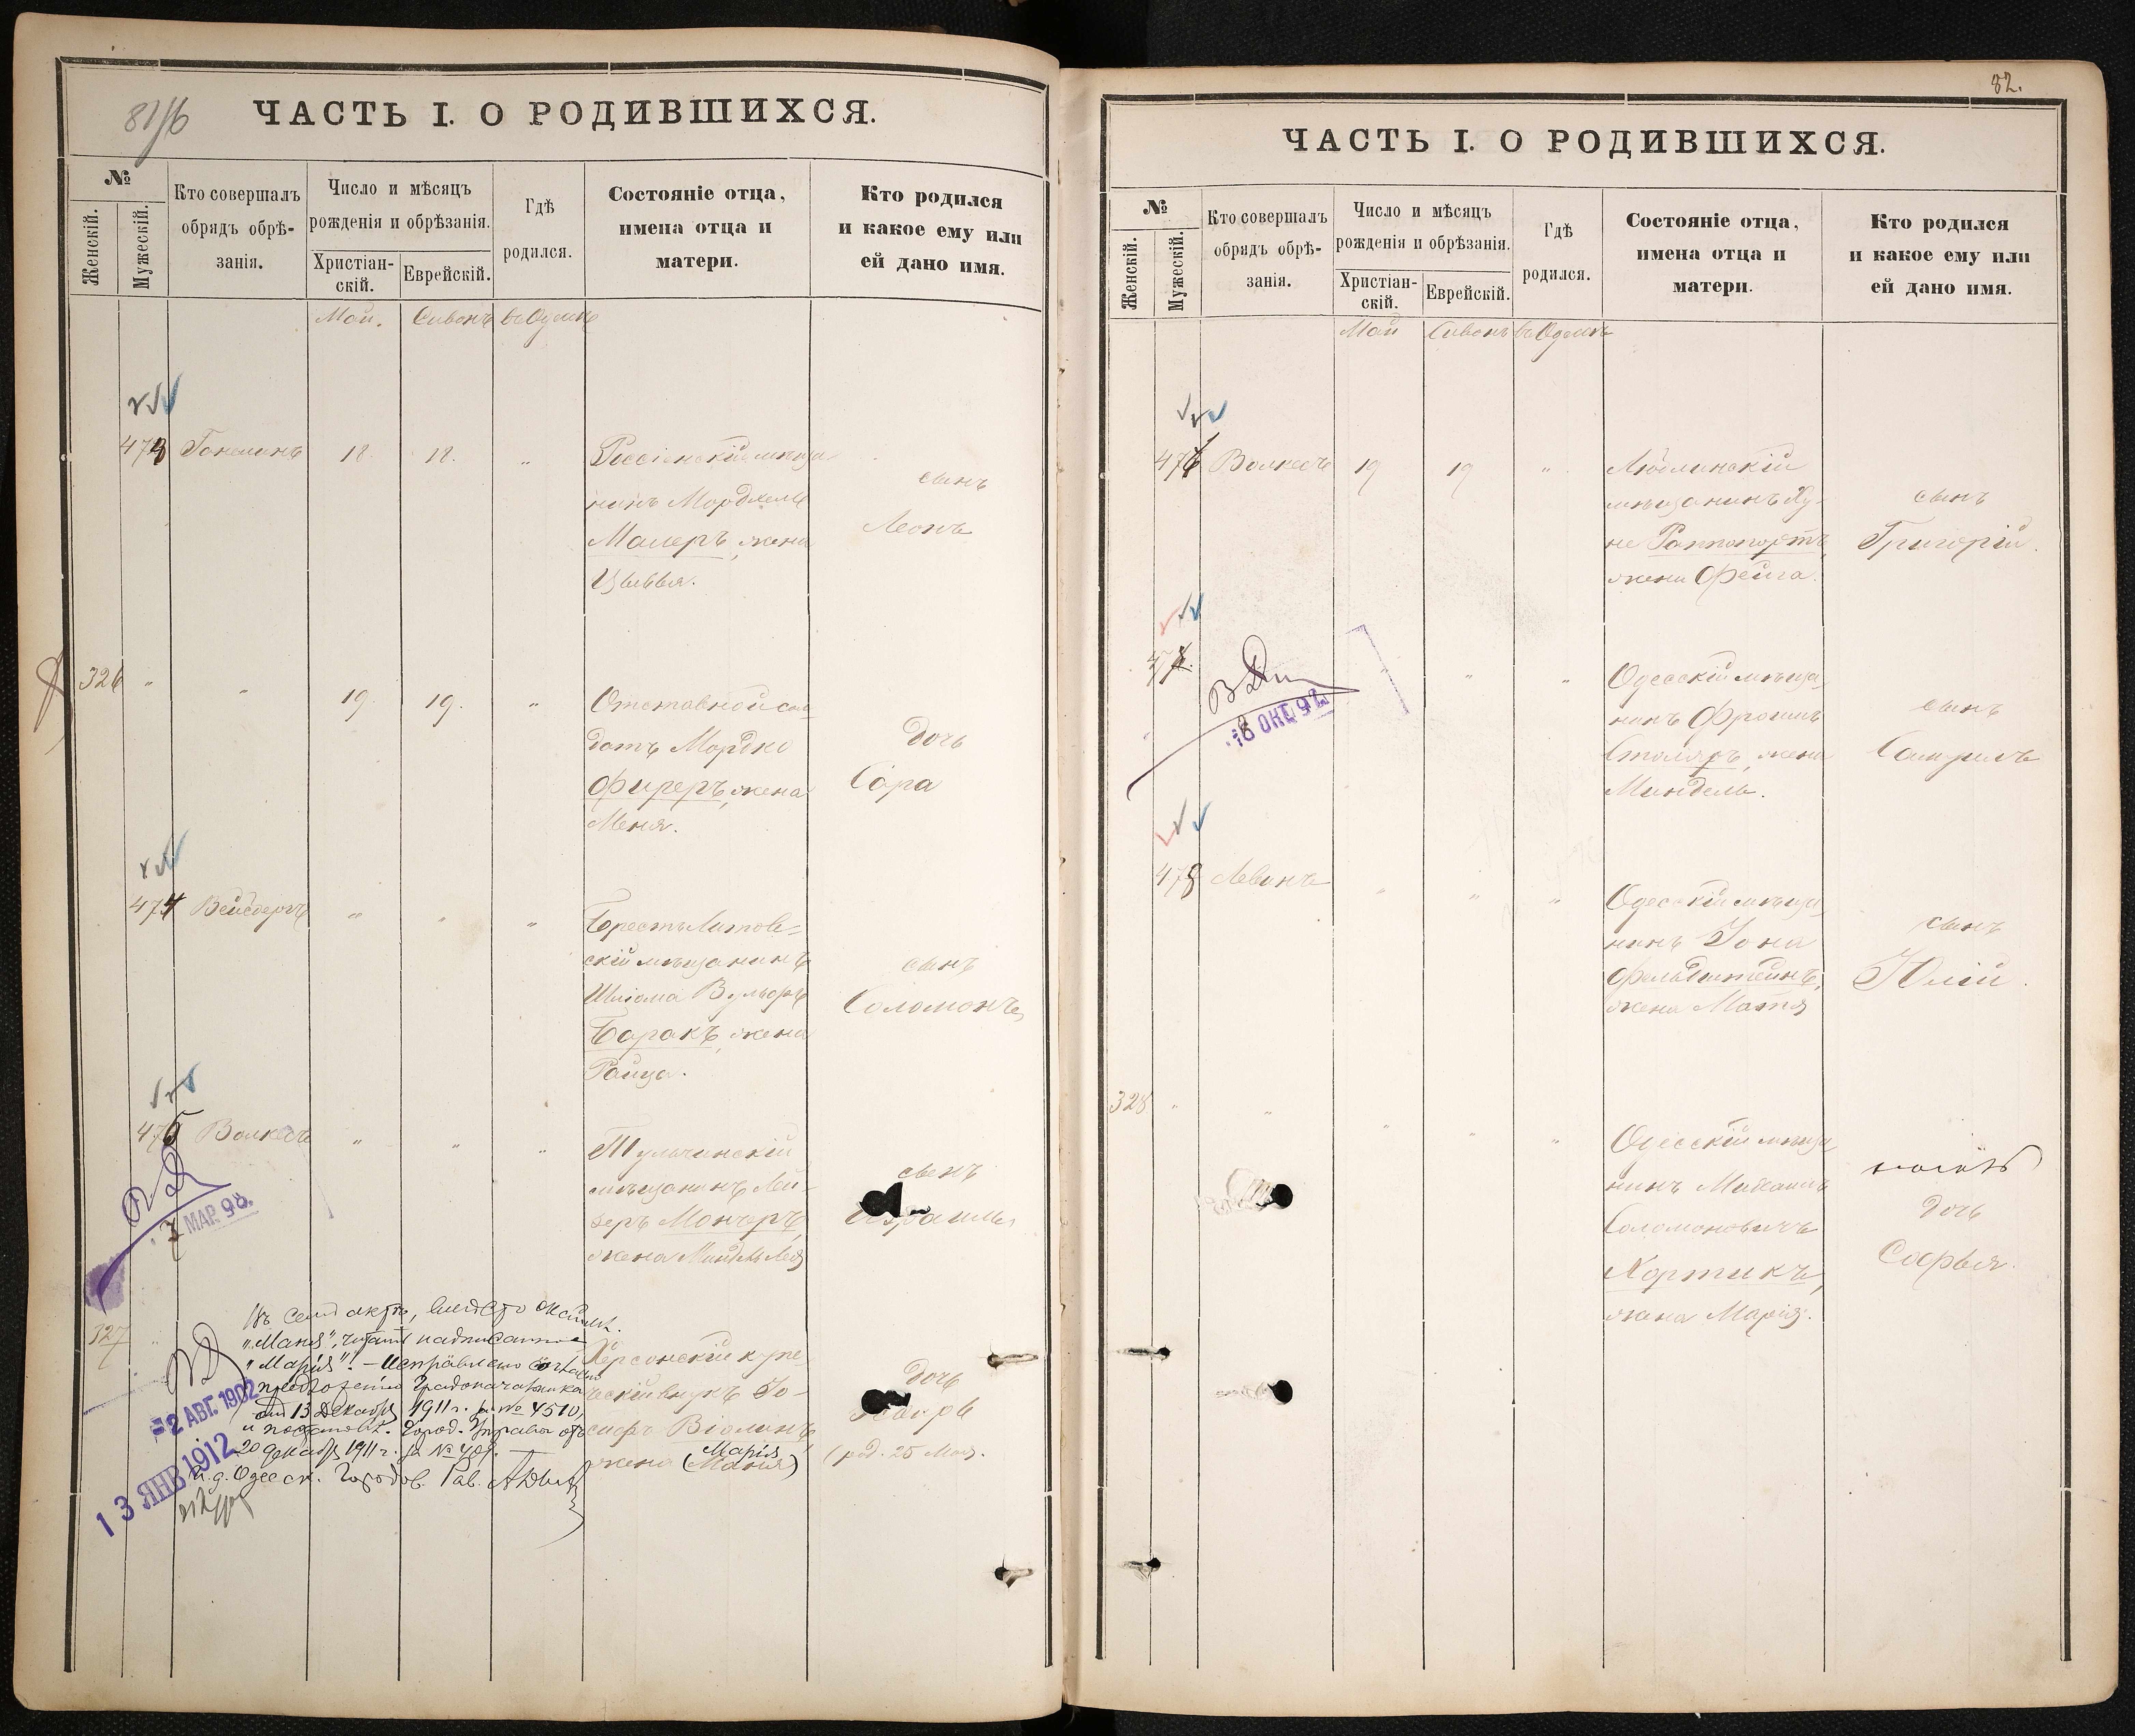 81/б
ЧАСТЬ I. О РОДИВШИХСЯ.
№
Женскій.
Мужескій.
Кто совершалъ
обрядъ обрѣ-
занія.
Число и мѣсяцъ
рожденія и обрѣзанія.
Христіан-
скій.
Еврейскій.
Гдѣ
родился.
Состояніе отца,
имена отца и
матери.
Кто родился
и какое ему или
ей дано имя.
Май. Сивонъ въ Одессѣ
473 18. 18. "
Россіенскій мѣща-
нинъ Мордхель
Малеръ, жена
Цывья.
сынъ
Леонъ
326 " " 19. 19. "
Отставной сол-
датъ Мордко
Фиреръ, жена
Меня.
дочь
Сара
474 Вейсбергъ " " "
Брестъ Литов-
скій мѣщанинъ
Шліома Вульфъ
Баракъ, жена
Раица.
сынъ
Соломонъ
475 Волкесъ " " "
Тульчинскій
мѣщанинъ Лей-
зеръ Мончеръ,
жена
сынъ
7 МАР. 98.
327 "
Въ семъ актѣ, вмѣсто
"Маня", читать надписанное
"Марія". - Исправлено согласно
предложенію Градоначальника
отъ 13 Декабря 1911 г. за № 4510,
и постановл. Город. Управы отъ
20 декабря 1911 г. за №
И. д. Одесск. Городов. Рав.
=2 АВГ. 1902
13 ЯНВ 1912
Херсонскій купе-
ческій внукъ Іо-
сифъ Віолинъ,
Марія
жена (Маня)
дочь
(род. 25 Мая.
82.
ЧАСТЬ I. О РОДИВШИХСЯ.
№
Женскій.
Мужескій.
Кто совершалъ
обрядъ обрѣ-
занія.
Число и мѣсяцъ
рожденія и обрѣзанія.
Христіан-
скій.
Еврейскій.
Гдѣ
родился.
Состояніе отца,
имена отца и
матери.
Кто родился
и какое ему или
ей дано имя.
Май Сивонъ въ Одессѣ
476 Волкесъ 19 19 "
Люблинскій
мѣщанинъ Ху-
не Раппопортъ,
жена Фейга.
сынъ
Григорій.
477. " "
18 ОКТ. 92
Одесскій мѣща-
нинъ Фроимъ
Столяръ, жена
Миндель.
сынъ
478 Левинъ " " "
Одесскій мѣща-
нинъ Іона
Фельдштейнъ,
жена Матя
сынъ
Юлій.
328 " " " " "
Одесскій мѣща-
нинъ Михаилъ
Соломоновичъ
Хортикъ,
жена Марія.
дочь
Софья.